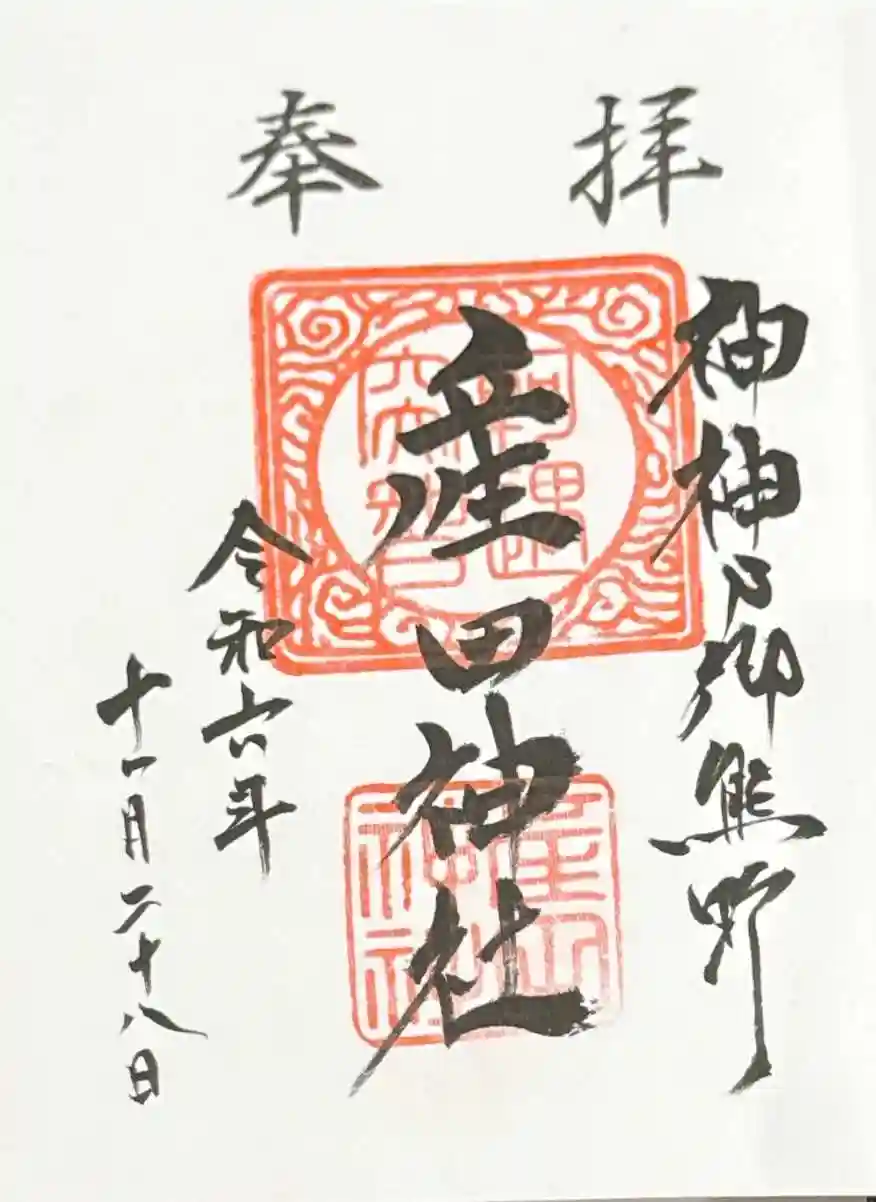 奉拝
神々乃郷熊野
産田神社
令和六年
十一月二十八日